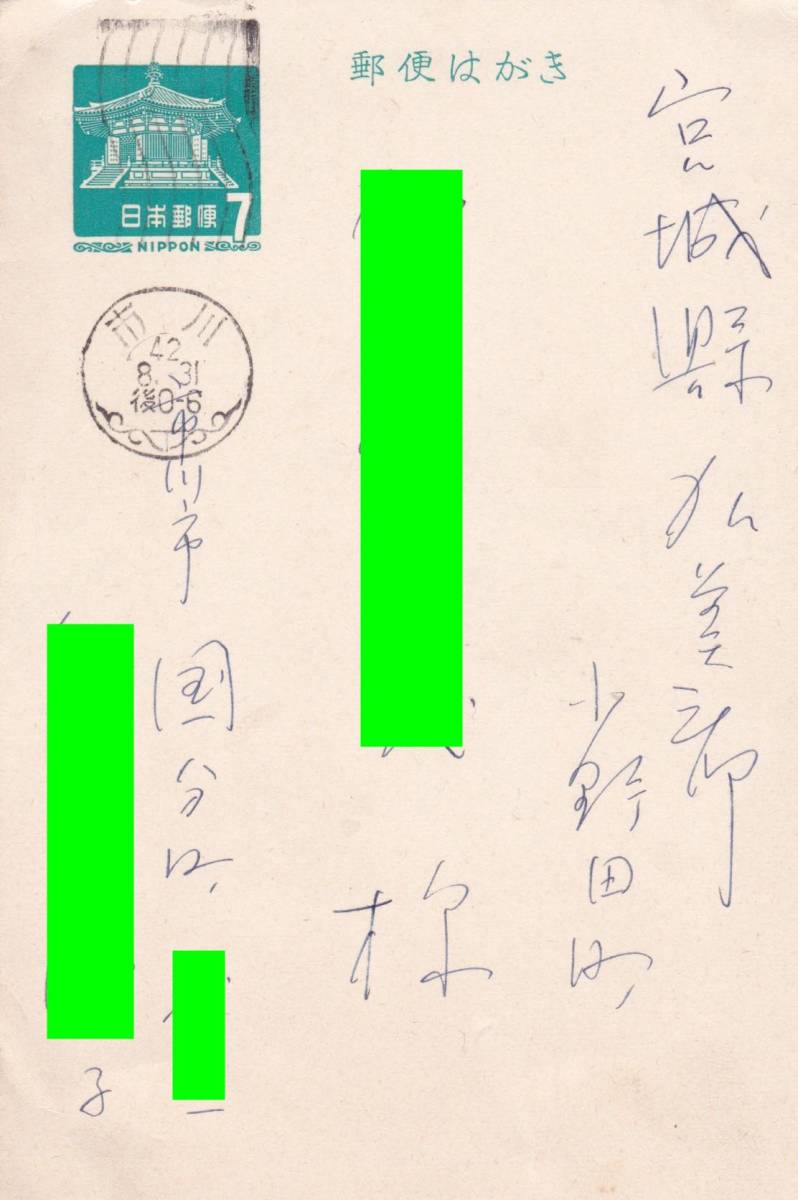 郵便はがき
日本郵便 7
NIPPON
市川
42
8. 31
後0-6
宮城県加美郡
小野田町
様
市川市
国分町
一
子